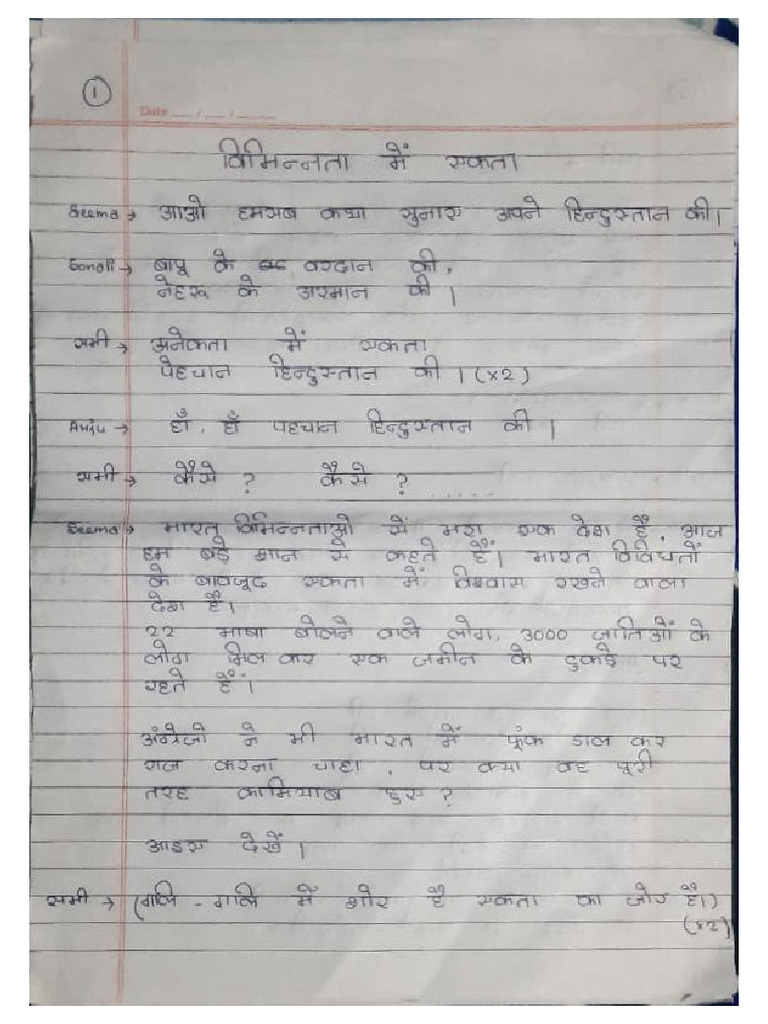 1
Date __/__/____
विभिन्नता में एकता
Seema → आओ हमसब कथा सुनाए अपने हिन्दुस्तान की।
Sonali → बापू के वरदान की,
नेहरू के अरमान की।
सभी → अनेकता में एकता
पेहचान हिन्दुस्तान की। (x2)
→ हाँ, हाँ पहचान हिन्दुस्तान की।
सभी → कैसे ? कैसे ?
Seema → भारत विभिन्नताओ से भरा एक देश है, आज
हम बड़े शान से कहते हैं। भारत विविधतों
के बावजूद एकता में विश्वास रखने वाला
देश है।
22 भाषा बोलने वाले लोग, 3000 जातिओं के
लोग मिल कर एक जमीन के टुकड़े पर
रहते हैं।
अंग्रेजो ने भी भारत में फूंक डाल कर
राज करना चाहा, पर क्या वह पूरी
तरह कामियाब हुए ?
आइए देखें।
सभी → (गलि - गलि में शोर है एकता का जोर है।)
(x2)